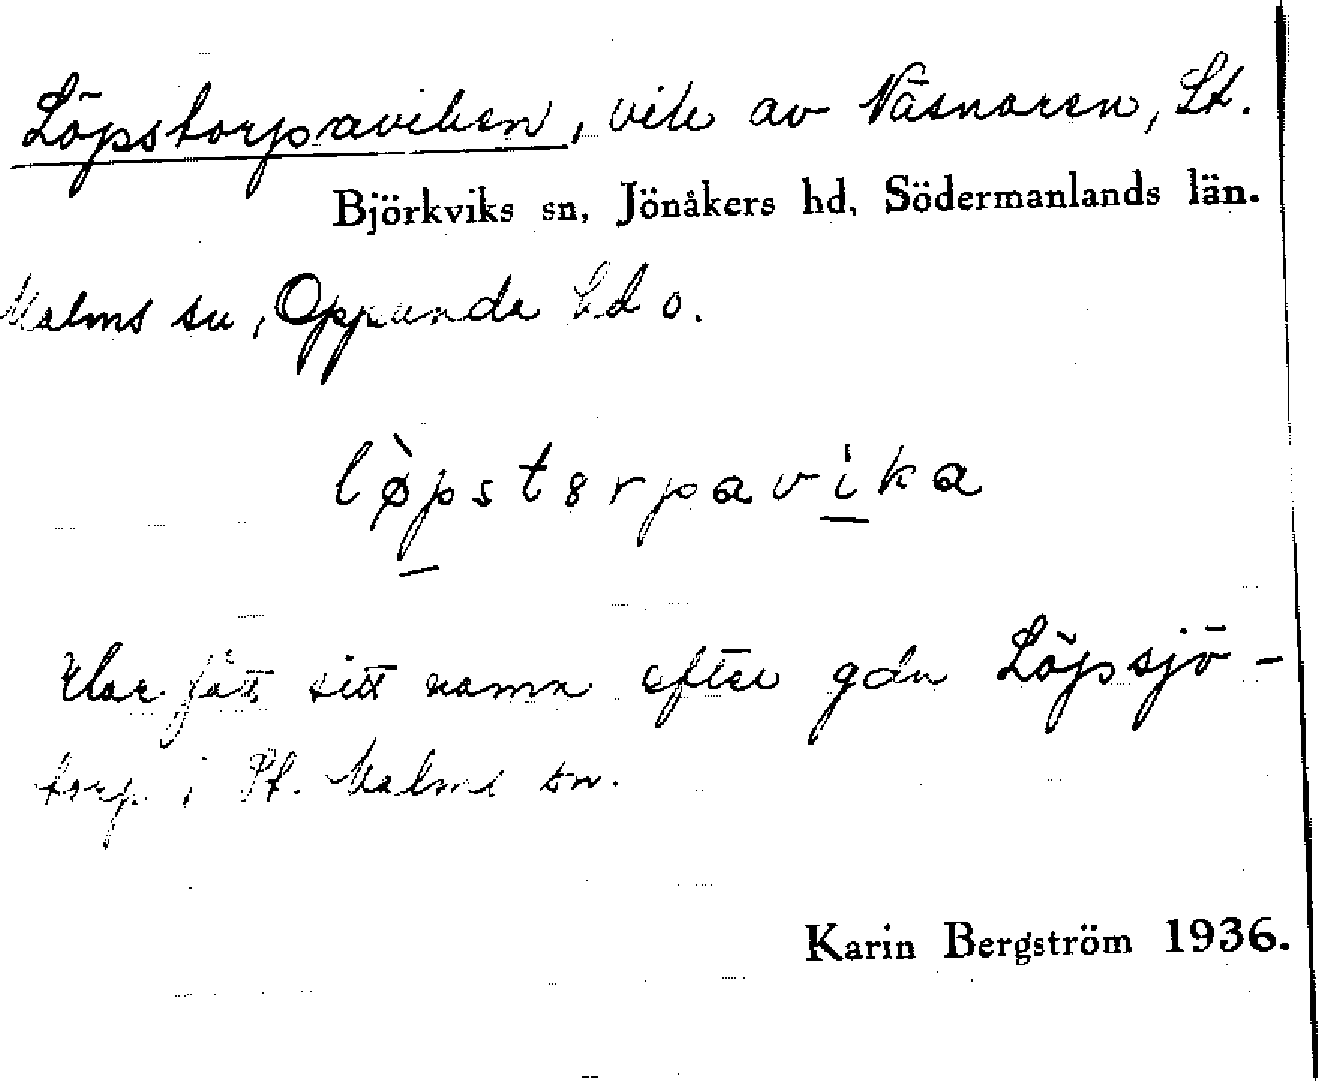 Löpstorpaviken, vik av Näsnaren, St.
Björkviks sn, Jönåkers hd, Södermanlands län.
Malms sn, Oppunda hd o.
lø̀pstɵrpavika
Har fått sitt namn efter gdn Löpsjö-
torp i St. Malms sn.
Karin Bergström 1936.